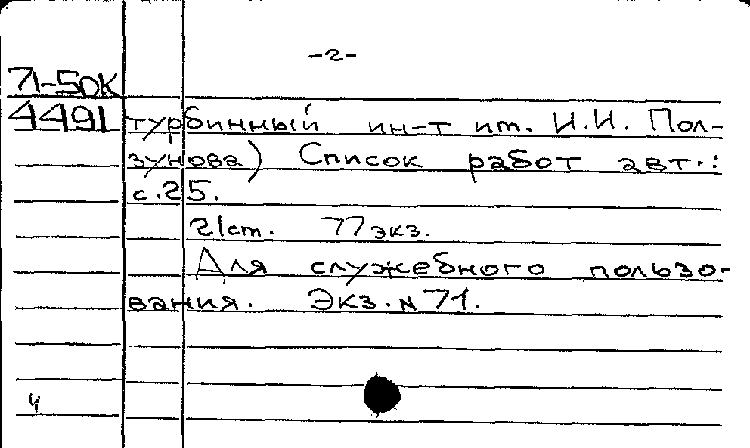 -2-
71-5ДК
4491
турбинный ин-т им. И.И. Пол-
зунова) Список работ авт.:
с.25.
21cm. 77экз.
Для служебного пользо-
вания. Экз.N71.
4